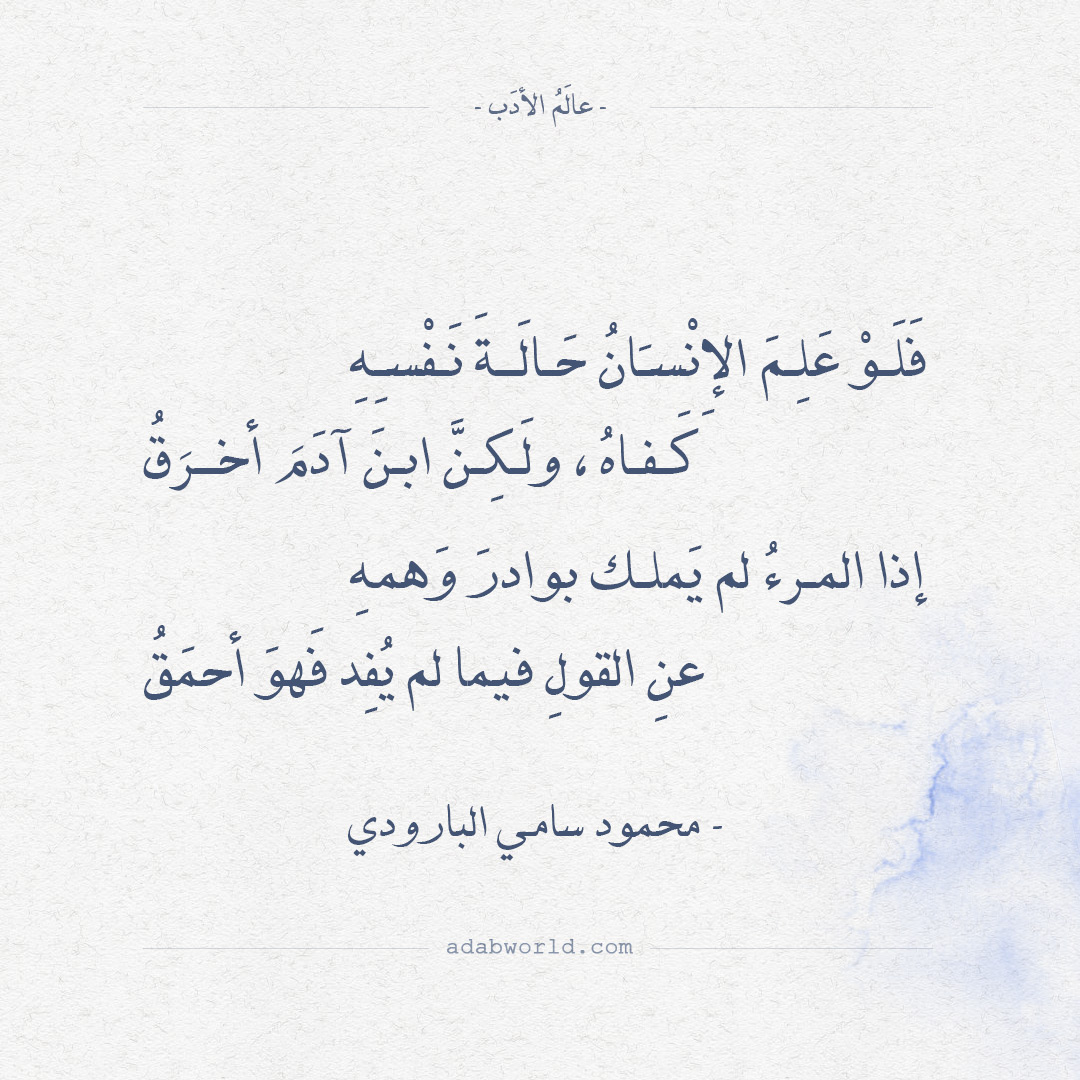 - عالَمُ الأدَب -
فَلَـوْ عَلِـمَ الإِنْسـَانُ حَـالَــةَ نَـفْسـِـهِ
كَـفـاهُ ، ولَـكِـنَّ ابـنَ آدَمَ أخــرَقُ
إذا المـرءُ لم يَملـك بوادرَ وَهمـهِ
عنِ القولِ فيما لم يُفِد فَهوَ أحمَقُ
- محمود سامي البارودي
adabworld.com